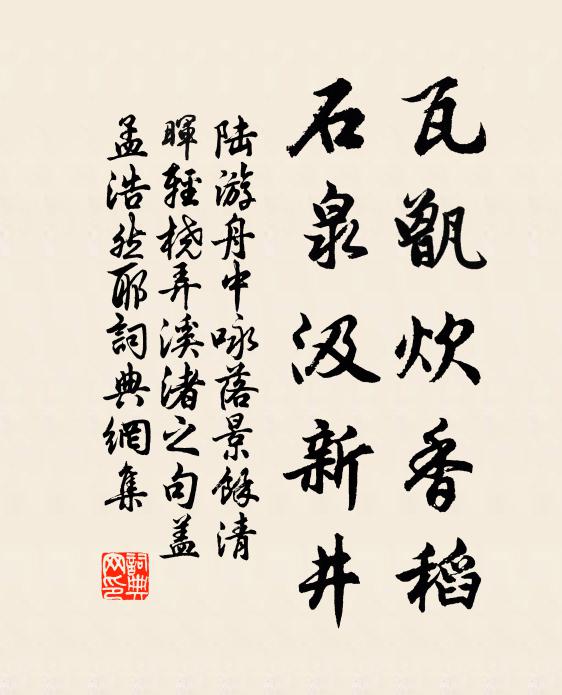 瓦甑炊香稻
石泉汲新井
陆游舟中咏落景餘清
暉輕橈弄溪渚之句盖
孟浩然耶詞典網集
詞典網印